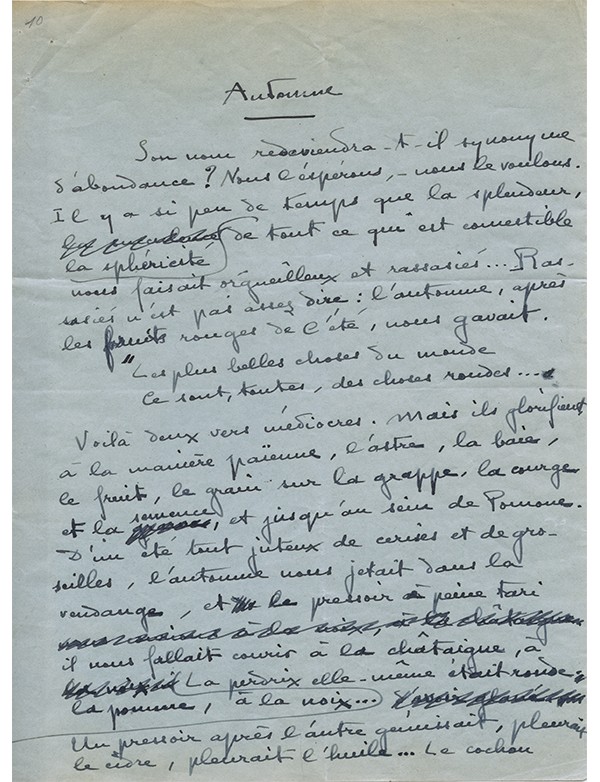 10
Automne
Son nom redeviendra-t-il synonyme
d'abondance ? Nous l'espérons, – nous le voulons.
Il y a si peu de temps que la splendeur,
de tout ce qui est comestible
la sphéricité
nous faisait orgueilleux et rassasiés... Ras-
sasiés n'est pas assez dire : l'automne, après
les fruits rouges de l'été, nous gavait.
"Les plus belles choses du monde
Ce sont, toutes, des choses rondes...
Voilà deux vers médiocres. Mais ils glorifient
à la manière païenne, l'astre, la baie,
le fruit, le grain sur la grappe, la courge
semence
et la , et jusqu'au sein de Pomone.
D'un été tout juteux de cerises et de gro-
seilles, l'automne nous jetait dans la
vendange, et le pressoir à peine tari
il nous fallait courir à la châtaigne, à
La perdrix elle-même était ronde
la pomme, à la noix...
Un pressoir après l'autre gémissait, pleurait
le cidre, pleurait l'huile... Le cochon